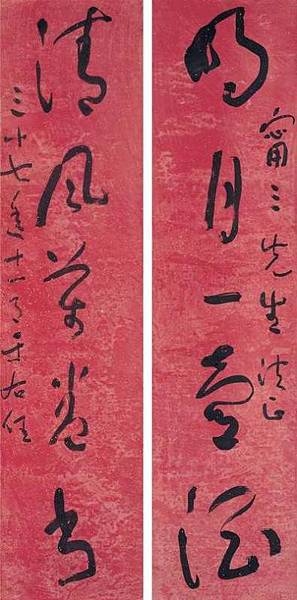 甯三先生法正
明月一壺酒
清風萬卷書
三十七年十一月于右任